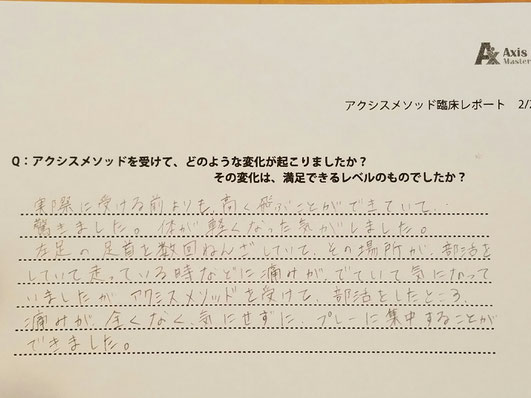 Axis
Master
アクシスメソッド臨床レポート 2/
Q：アクシスメソッドを受けて、どのような変化が起こりましたか？
その変化は、満足できるレベルのものでしたか？
実際に受ける前よりも、高く飛ぶことができていて、
驚きました。体が軽くなった気がしました。
左足の足首を数回ねんざしていて、その場所が、部活を
していて走っている時などに痛みが、でていて気になって
いましたが アクシスメソッドを受けて、部活をしたところ、
痛みが、全くなく、気にせずに、プレーに集中することが
できました。